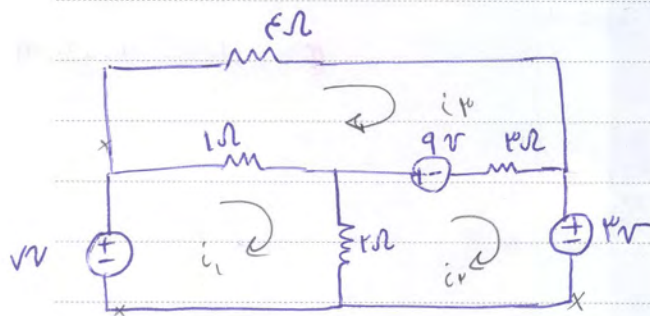 ۴Ω
i۳
۱Ω
۹v
۳Ω
۷v
i۱
۲Ω
i۲
۳v